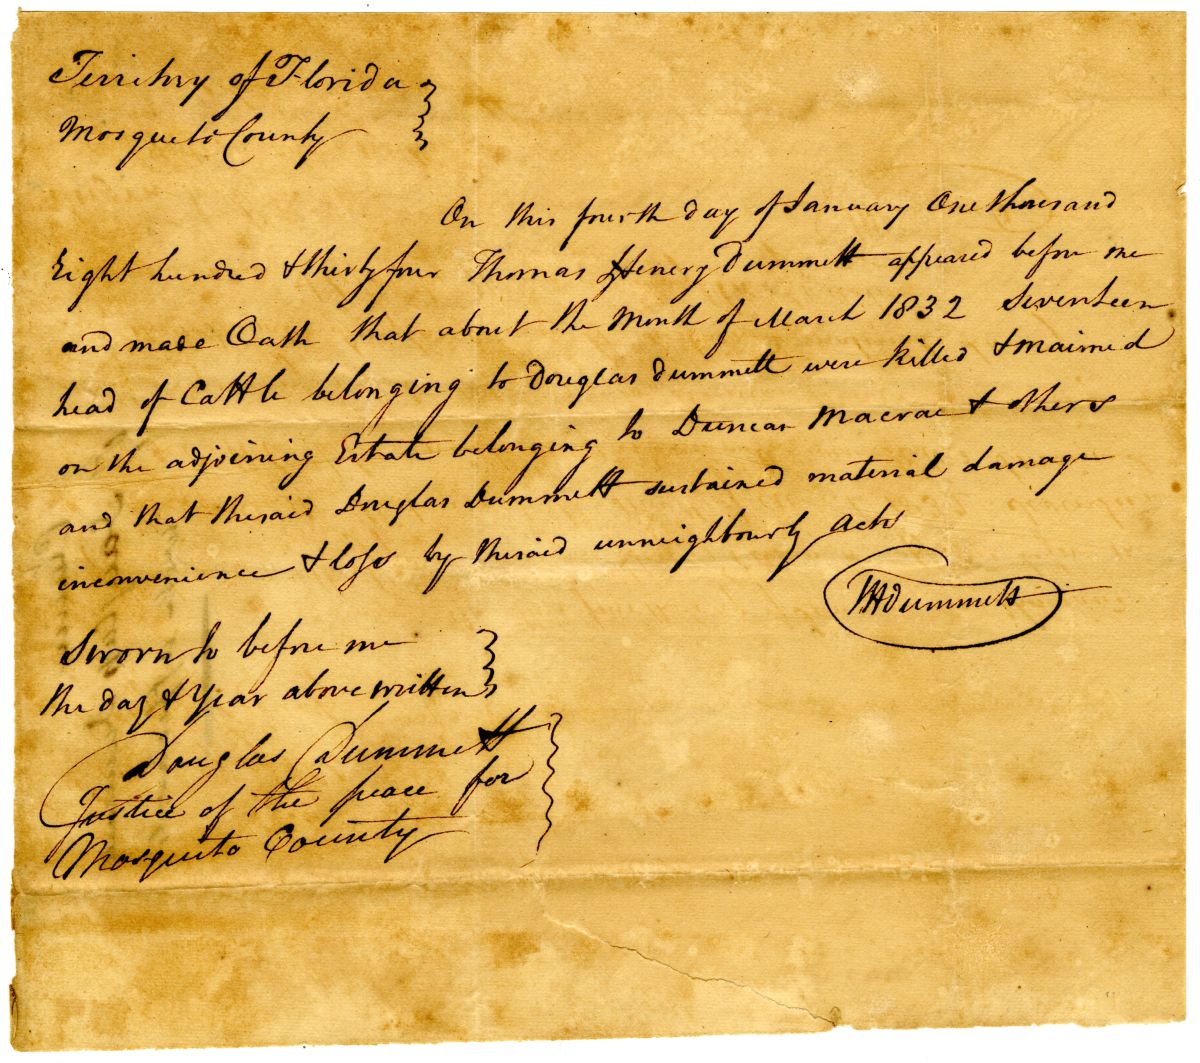 Territory of Florida
Mosquito County
On this fourth day of January One thousand
Eight hundred & thirty four Thomas Henery Dummett appeared before me
and made Oath that about the Month of March 1832 Seventeen
head of Cattle belonging to Douglas Dummett were killed & maimed
on the adjoining Estate belonging to Duncan Macrae & others
and that thesaid Douglas Dummett sustained material damage
inconvenience & loss by thesaid unneighbourly acts
THDummett
Sworn to before me
the day & Year above written
Douglas Dummett
Justice of the peace for
Mosquito County